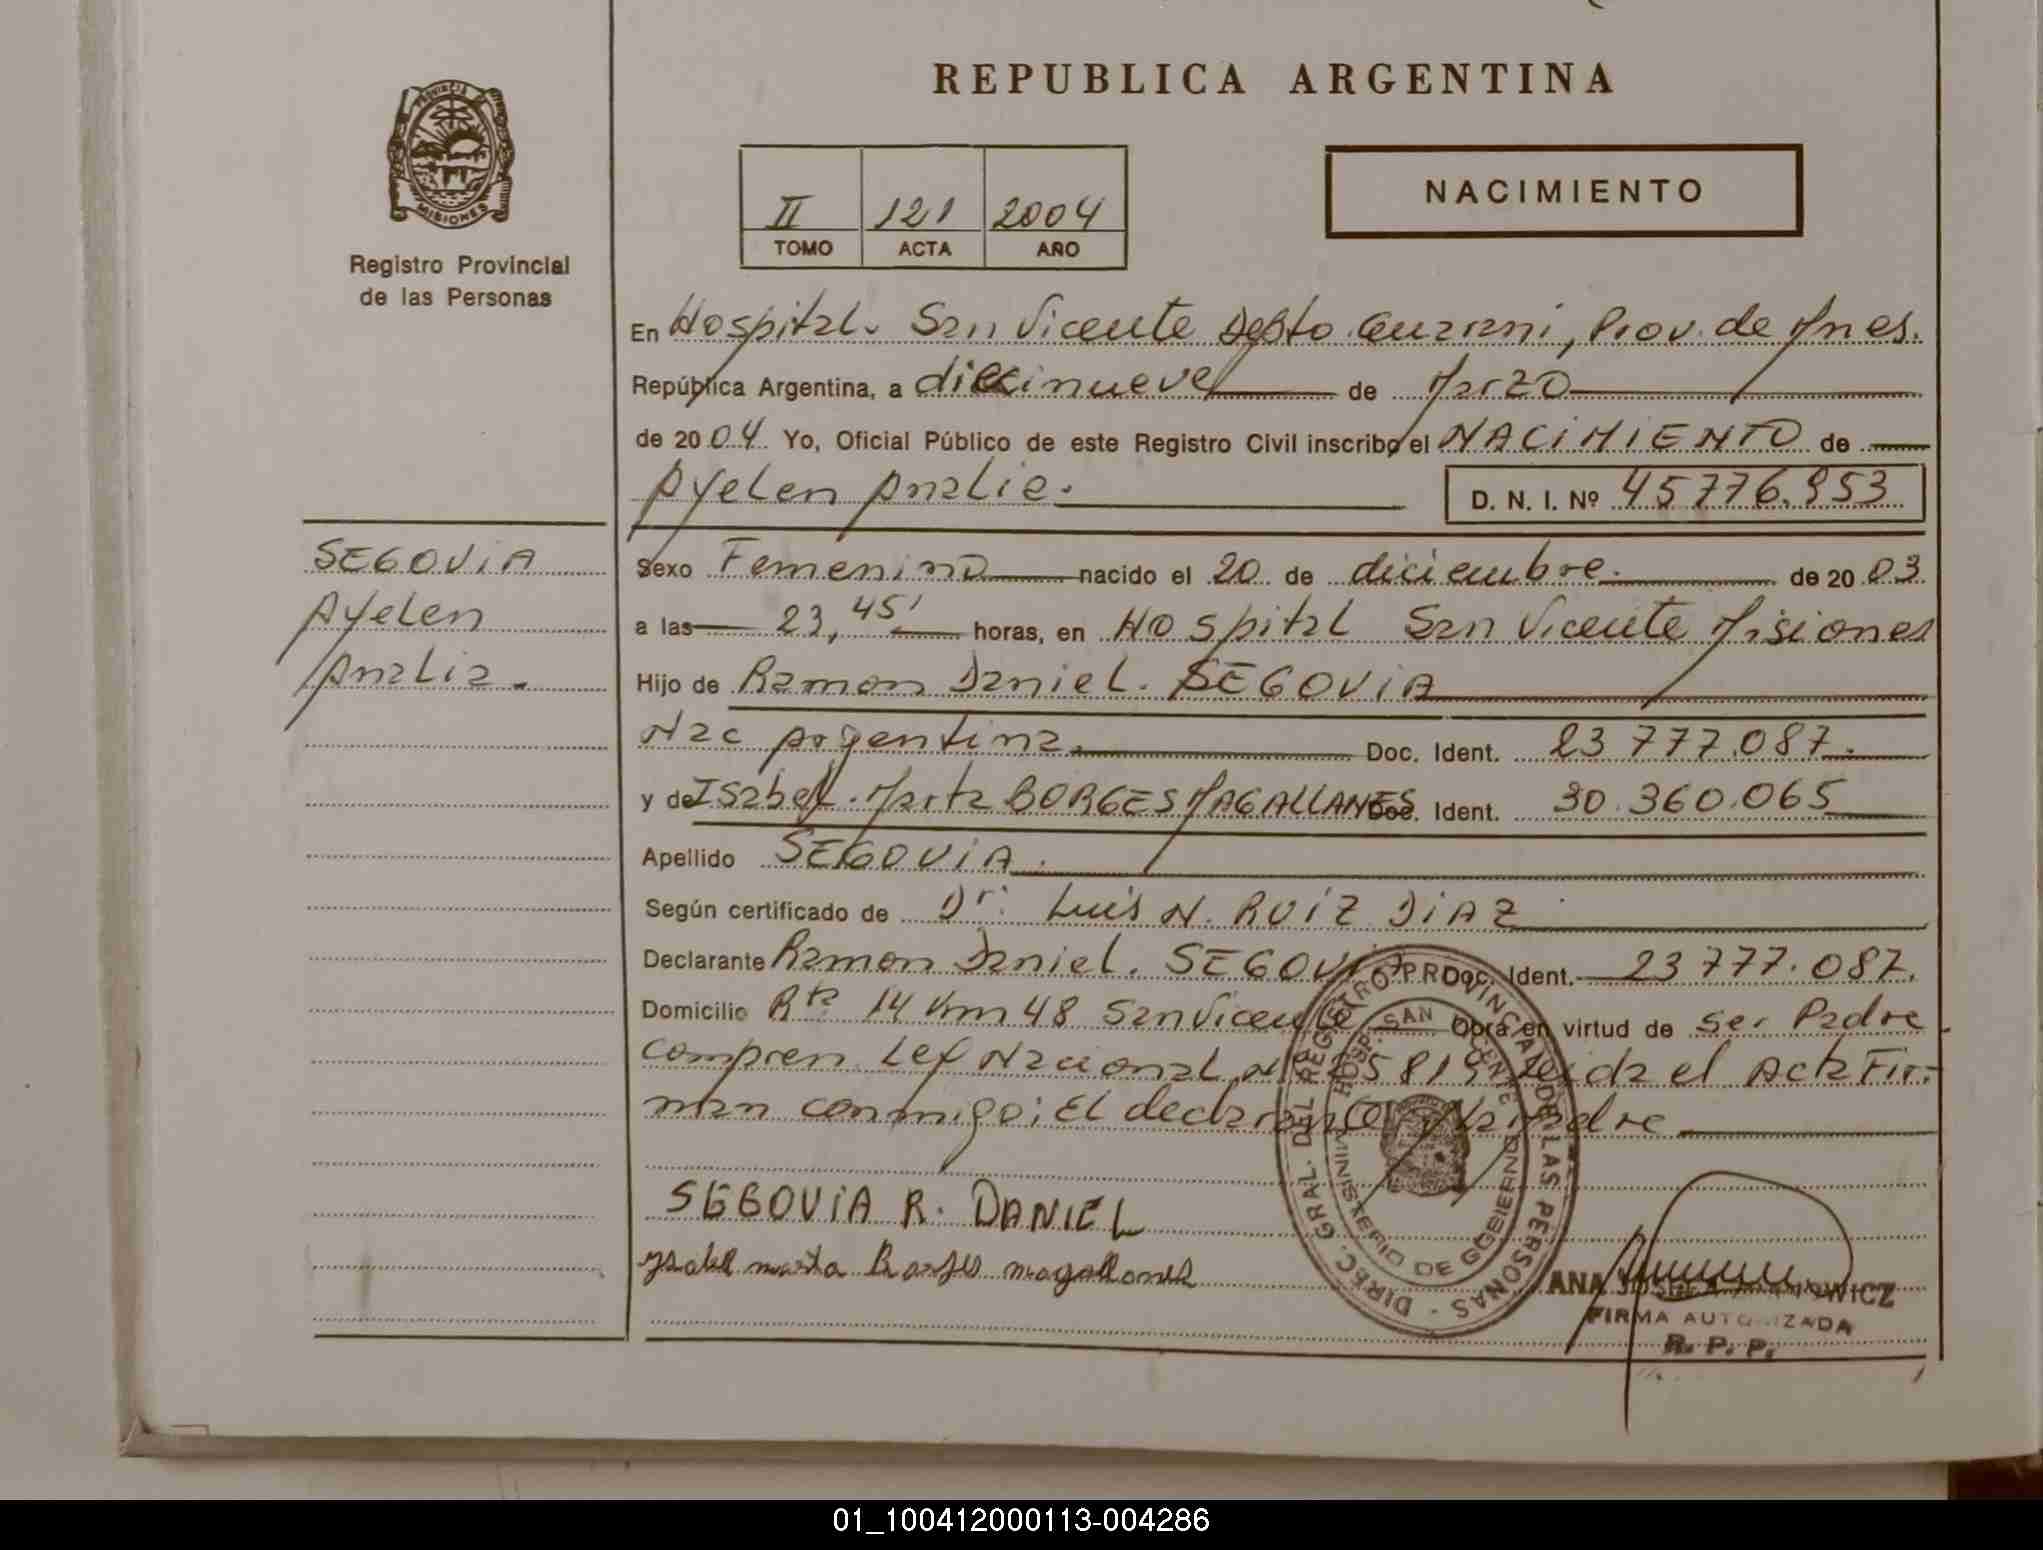 PROVINCIA DE
MISIONES
Registro Provincial
de las Personas
REPUBLICA ARGENTINA
II 121 2004
TOMO ACTA AÑO
NACIMIENTO
En Hospital. San Vicente Depto. Guarani, Prov. de Mnes.
República Argentina, a diecinueve de Marzo
de 2004 Yo, Oficial Público de este Registro Civil inscribo el NACIMIENTO de
Ayelen Analia.
D. N. I. Nº 45776.953
SEGOVIA
Ayelen
Analia.
Sexo Femenino nacido el 20 de diciembre. de 2003
a las 23,45' horas, en Hospital San Vicente Misiones
Hijo de Ramon Daniel. SEGOVIA
Nac Argentina. Doc. Ident. 23 777.087.
y de Isabel. Marta BORGES MAGALLANES Doc. Ident. 30.360.065
Apellido SEGOVIA.
Según certificado de Dr. Luis N. RUIZ DIAZ
Declarante Ramon Daniel. SEGOVIA Doc. Ident. 23 777.087.
Domicilio Rta 14 Km 48 San Vicente Obra en virtud de ser Padre
compren Ley Nacional Leida el Acta Fir-
man conmigo: El declarante y la madre
SEGOVIA R. DANIEL
Ysabel marta Borges magallanes
DIREC. GRAL. DEL REGISTRO PROVINCIAL DE LAS PERSONAS -
HOSP. SAN VICENTE
MINISTERIO DE GOBIERNO
ANA
FIRMA AUTORIZADA
R. P. P.
01_100412000113-004286